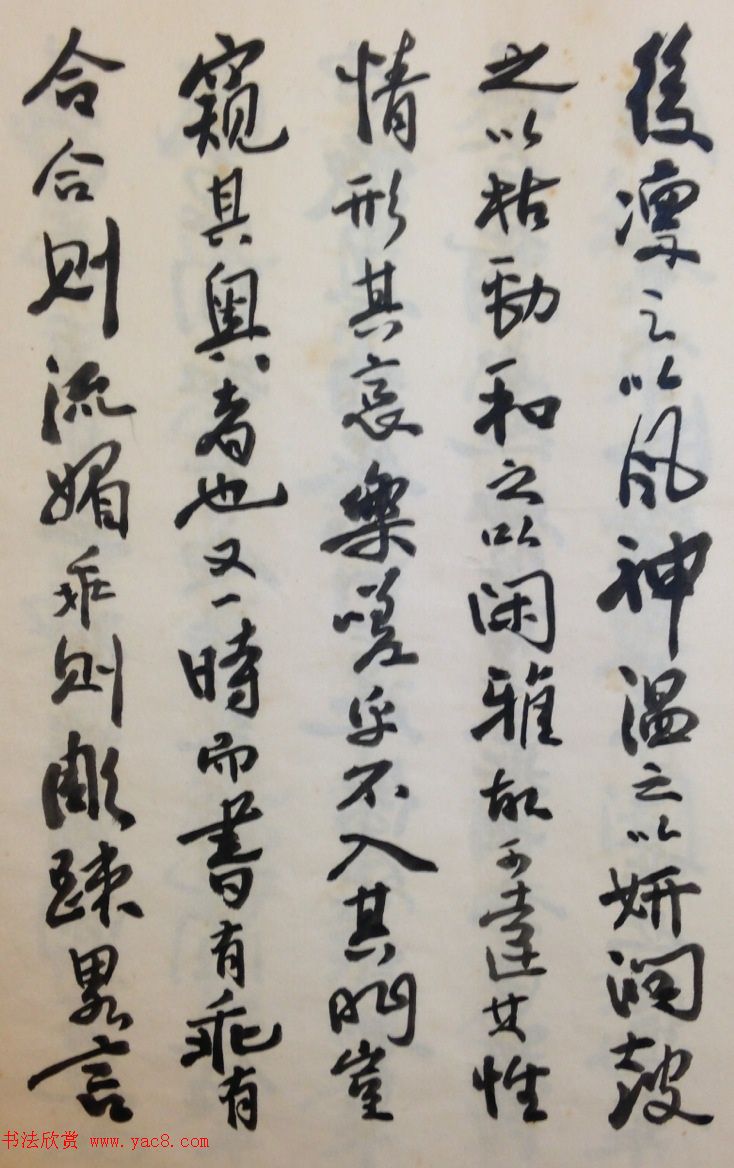 後凛之以風神温之以妍潤鼓
之以枯勁和之以閑雅故可達其性
情形其哀樂嗟乎不入其門豈
窺其奥者也又一時而書有乖有
合合則流媚乖則彫疎畧言
书法欣赏 www.yac8.com